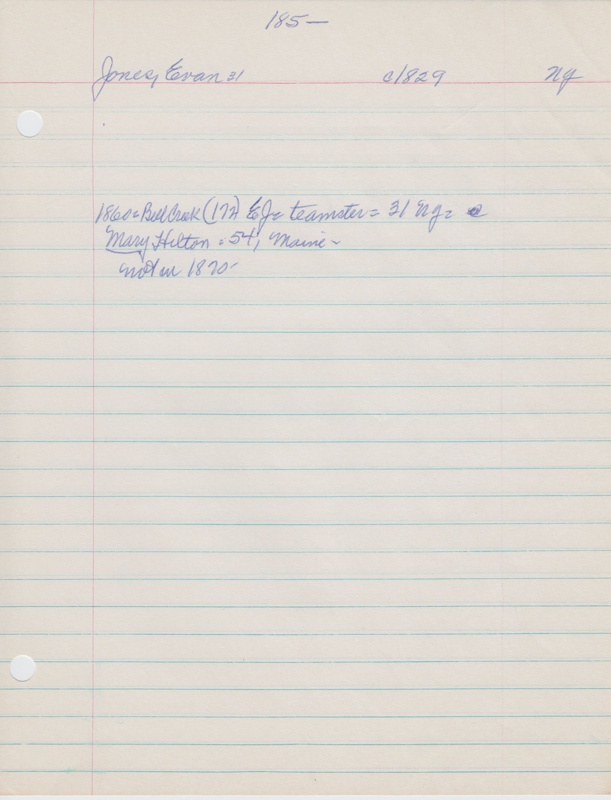 185—
Jones, Evan 31 c1829 Ng
1860= Bell Creek (172) EJ= teamster= 31 Ng=
Mary Hilton = 54, Maine -
not in 1870-